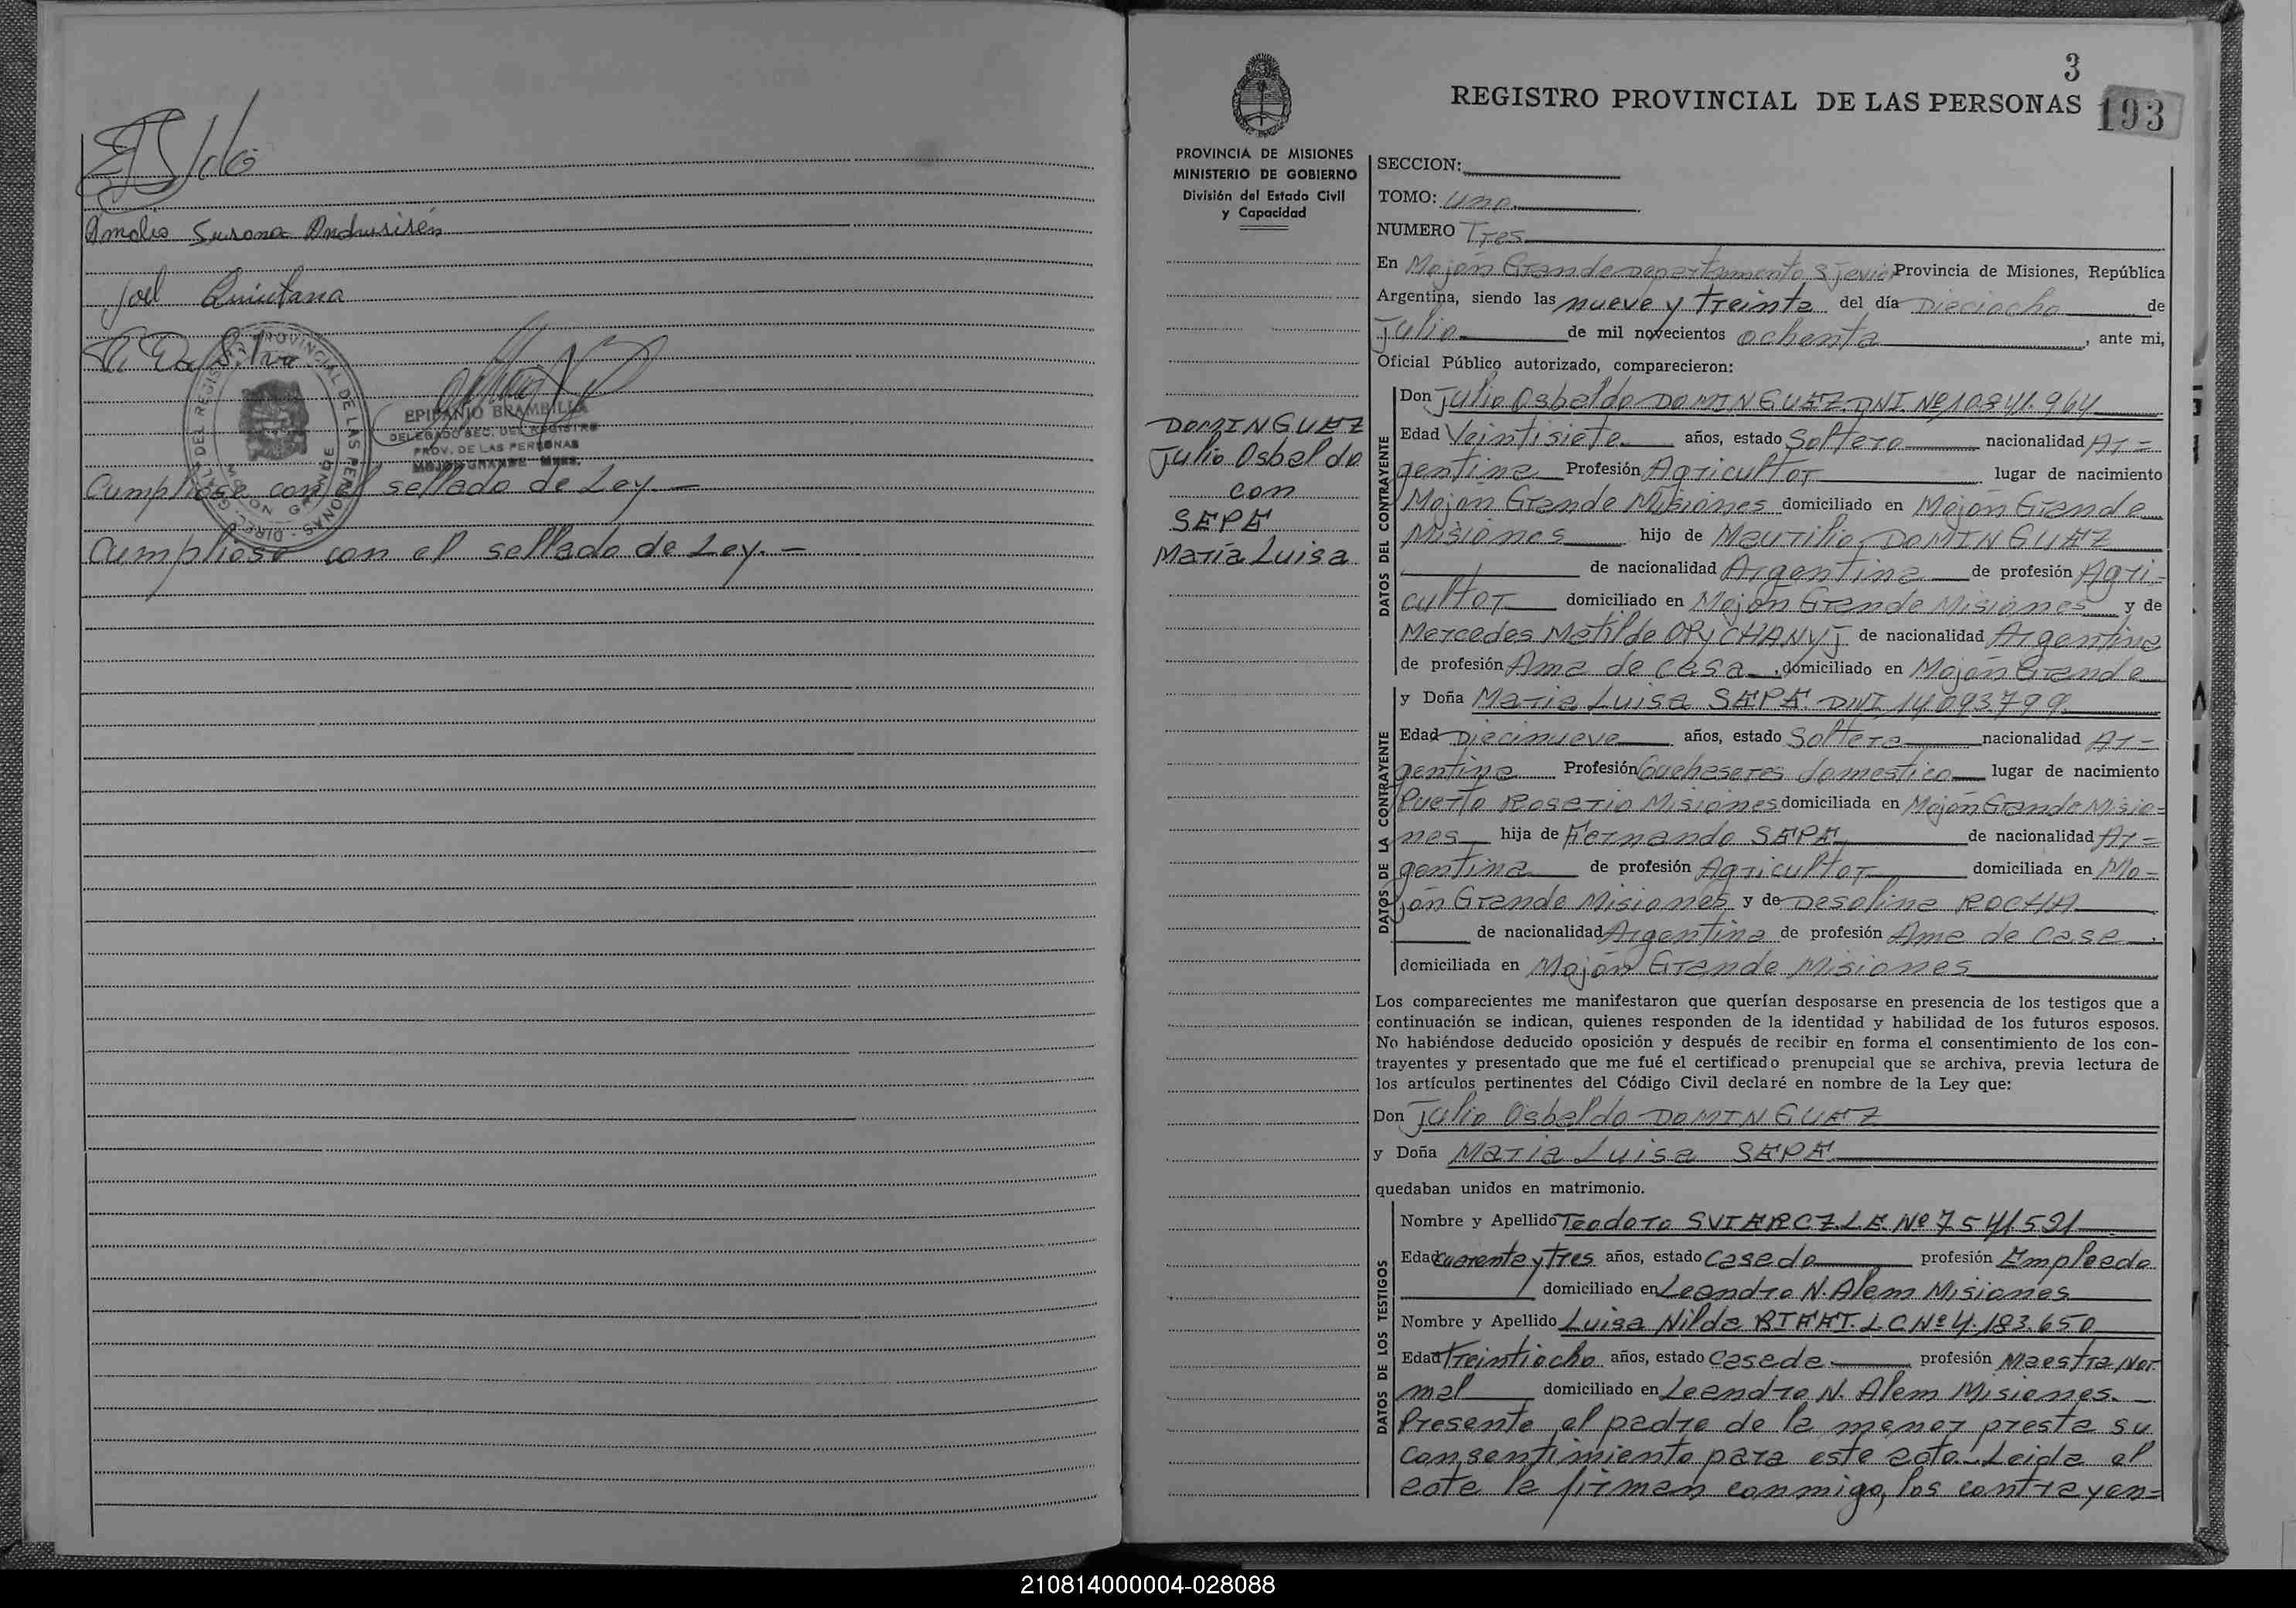 Amalia Susana Andrusisén
Joel Quintana
EPIFANIO BRAMBILLA
DELEGADO SEC. DEL REGISTRO
PROV. DE LAS PERSONAS
MOJON GRANDE - Mnes.
Cumpliose con el sellado de Ley.-
Cumpliose con el sellado de Ley.-
3
REGISTRO PROVINCIAL DE LAS PERSONAS
193
PROVINCIA DE MISIONES
MINISTERIO DE GOBIERNO
División del Estado Civil
y Capacidad
DOMINGUEZ
Julio Osbaldo
con
SEPE
María Luisa
SECCION:
TOMO: uno
NUMERO Tres
En Mojón Grande Departamento S. Javier Provincia de Misiones, República
Argentina, siendo las nueve y treinta del día Dieciocho de
Julio de mil novecientos ochenta, ante mi,
Oficial Público autorizado, comparecieron:
DATOS DEL CONTRAYENTE
Don Julio Osbaldo DOMINGUEZ. DNI. Nº 10.841.964
Edad Veintisiete años, estado Soltero nacionalidad Ar=
gentina Profesión Agricultor lugar de nacimiento
Mojon Grande Misiones domiciliado en Mojón Grande
Misiones hijo de Maurilio DOMINGUEZ
de nacionalidad Argentina de profesión Agri=
cultor domiciliado en Mojón Grande Misiones y de
Mercedes Matilde OPYCHANYJ de nacionalidad Argentina
de profesión Ama de casa, domiciliado en Mojón Grande
DATOS DE LA CONTRAYENTE
y Doña Maria Luisa SEPE. DNI. 14.093.799
Edad Diecinueve años, estado Soltera nacionalidad Ar=
gentina Profesión Quehaseres domestico lugar de nacimiento
Puerto Rosario Misiones domiciliada en Mojón Grande Misio=
nes hija de Fernando SEPE de nacionalidad Ar=
gentina de profesión Agricultor domiciliada en Mo=
jón Grande Misiones y de Desolina ROCHA
de nacionalidad Argentina de profesión Ama de casa
domiciliada en Mojón Grande Misiones
Los comparecientes me manifestaron que querían desposarse en presencia de los testigos que a
continuación se indican, quienes responden de la identidad y habilidad de los futuros esposos.
No habiéndose deducido oposición y después de recibir en forma el consentimiento de los con-
trayentes y presentado que me fué el certificado prenupcial que se archiva, previa lectura de
los artículos pertinentes del Código Civil declaré en nombre de la Ley que:
Don Julio Osbaldo DOMINGUEZ
y Doña Maria Luisa SEPE
quedaban unidos en matrimonio.
DATOS DE LOS TESTIGOS
Nombre y Apellido Teodoro SVIERCZ. L.E. Nº 7.541.521
Edad cuarenta y tres años, estado casado profesión Empleado
domiciliado en Leandro N. Alem Misiones
Nombre y Apellido Luisa Nilda L C Nº 4.183.650
Edad treintiocho años, estado casada profesión Maestra Nor
mal domiciliado en Leandro N. Alem Misiones.
Presente el padre de la menor presta su
consentimiento para este acto. Leida el
acta la firman conmigo, los contrayen=
210814000004-028088